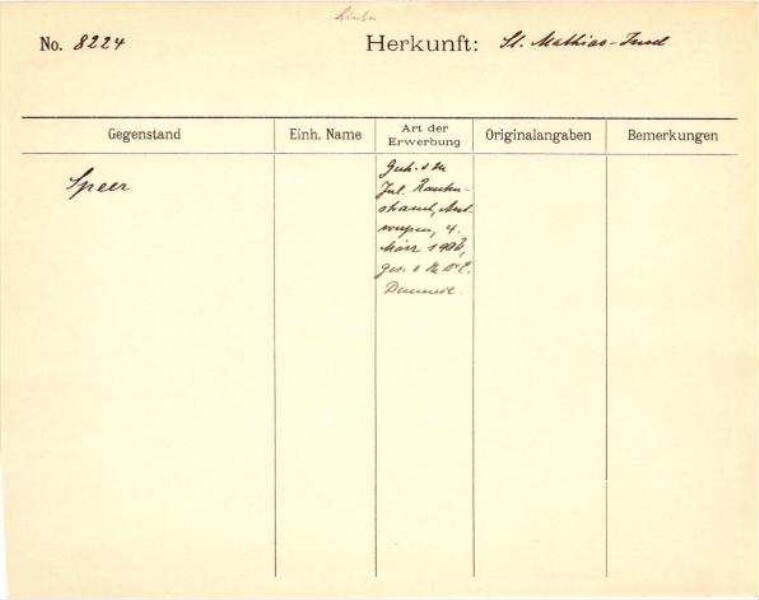 No. 8224
Herkunft: St. Mathias-Insel
Gegenstand
Einh. Name
Art der
Erwerbung
Originalangaben
Bemerkungen
Speer
Jul. Rauten-
strauch, Ant-
werpen, 4.
März
ges.